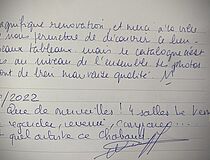 magnifique renovation, et merci à la ville
nous permettre de découvrir ce lieu
beaux tableaux mais le catalogue n'est
au niveau de l'ensemble photos
sont de bien mauvaise qualité. N
/2022
Que de merveilles ! 4 salles
regarder, revenir,
quel artiste ce Chabaud